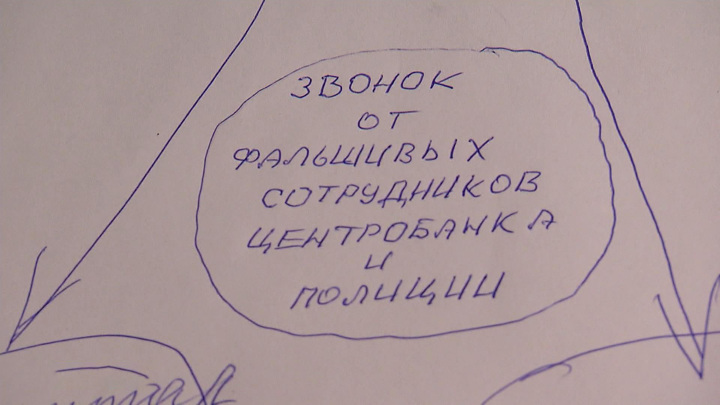 ЗВОНОК
ОТ
ФАЛЬШИВЫХ
СОТРУДНИКОВ
ЦЕНТРОБАНКА
И
ПОЛИЦИИ